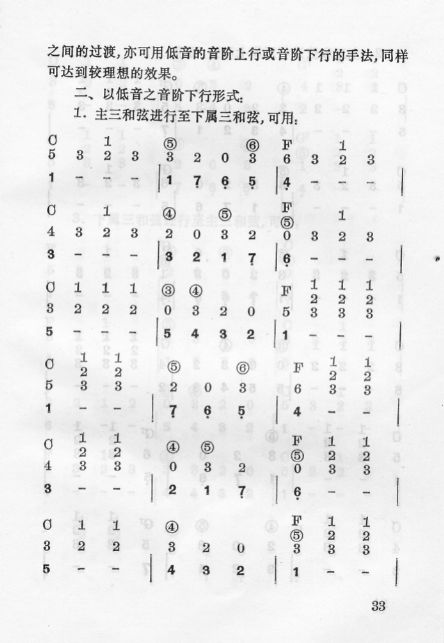 之间的过渡,亦可用低音的音阶上行或音阶下行的手法,同样
可达到较理想的效果。
二、以低音之音阶下行形式:
1. 主三和弦进行至下属三和弦,可用:
C 1 ⑤ ⑥ F 1
5 3 2 3 3 2 0 3 6 3 2 3
1 - - - 1 7 6 5 4 - - -
C 1 ④ ⑤ F 1
⑤
4 3 2 3 2 0 3 2 0 3 2 3
3 - - - 3 2 1 7 6 - - -
C 1 1 1 ③ ④ F 1 1 1
2 2 2
3 2 2 2 0 3 2 0 5 3 3 3
5 - - - 5 4 3 2 1 - - -
1 1 1 1
C 2 2 ⑤ ⑥ F 2 2
5 3 3 2 0 3 6 3 3
1 - - 7 6 5 4 - -
C 1 1 F 1 1
2 2 ④ ⑤ ⑤ 2 2
4 3 3 0 3 2 0 3 3
3 - - 2 1 7 6 - -
C 1 1 ④ F 1 1
⑤ 2 2
3 2 2 3 2 0 3 3 3
5 - - 4 3 2 1 - -
33